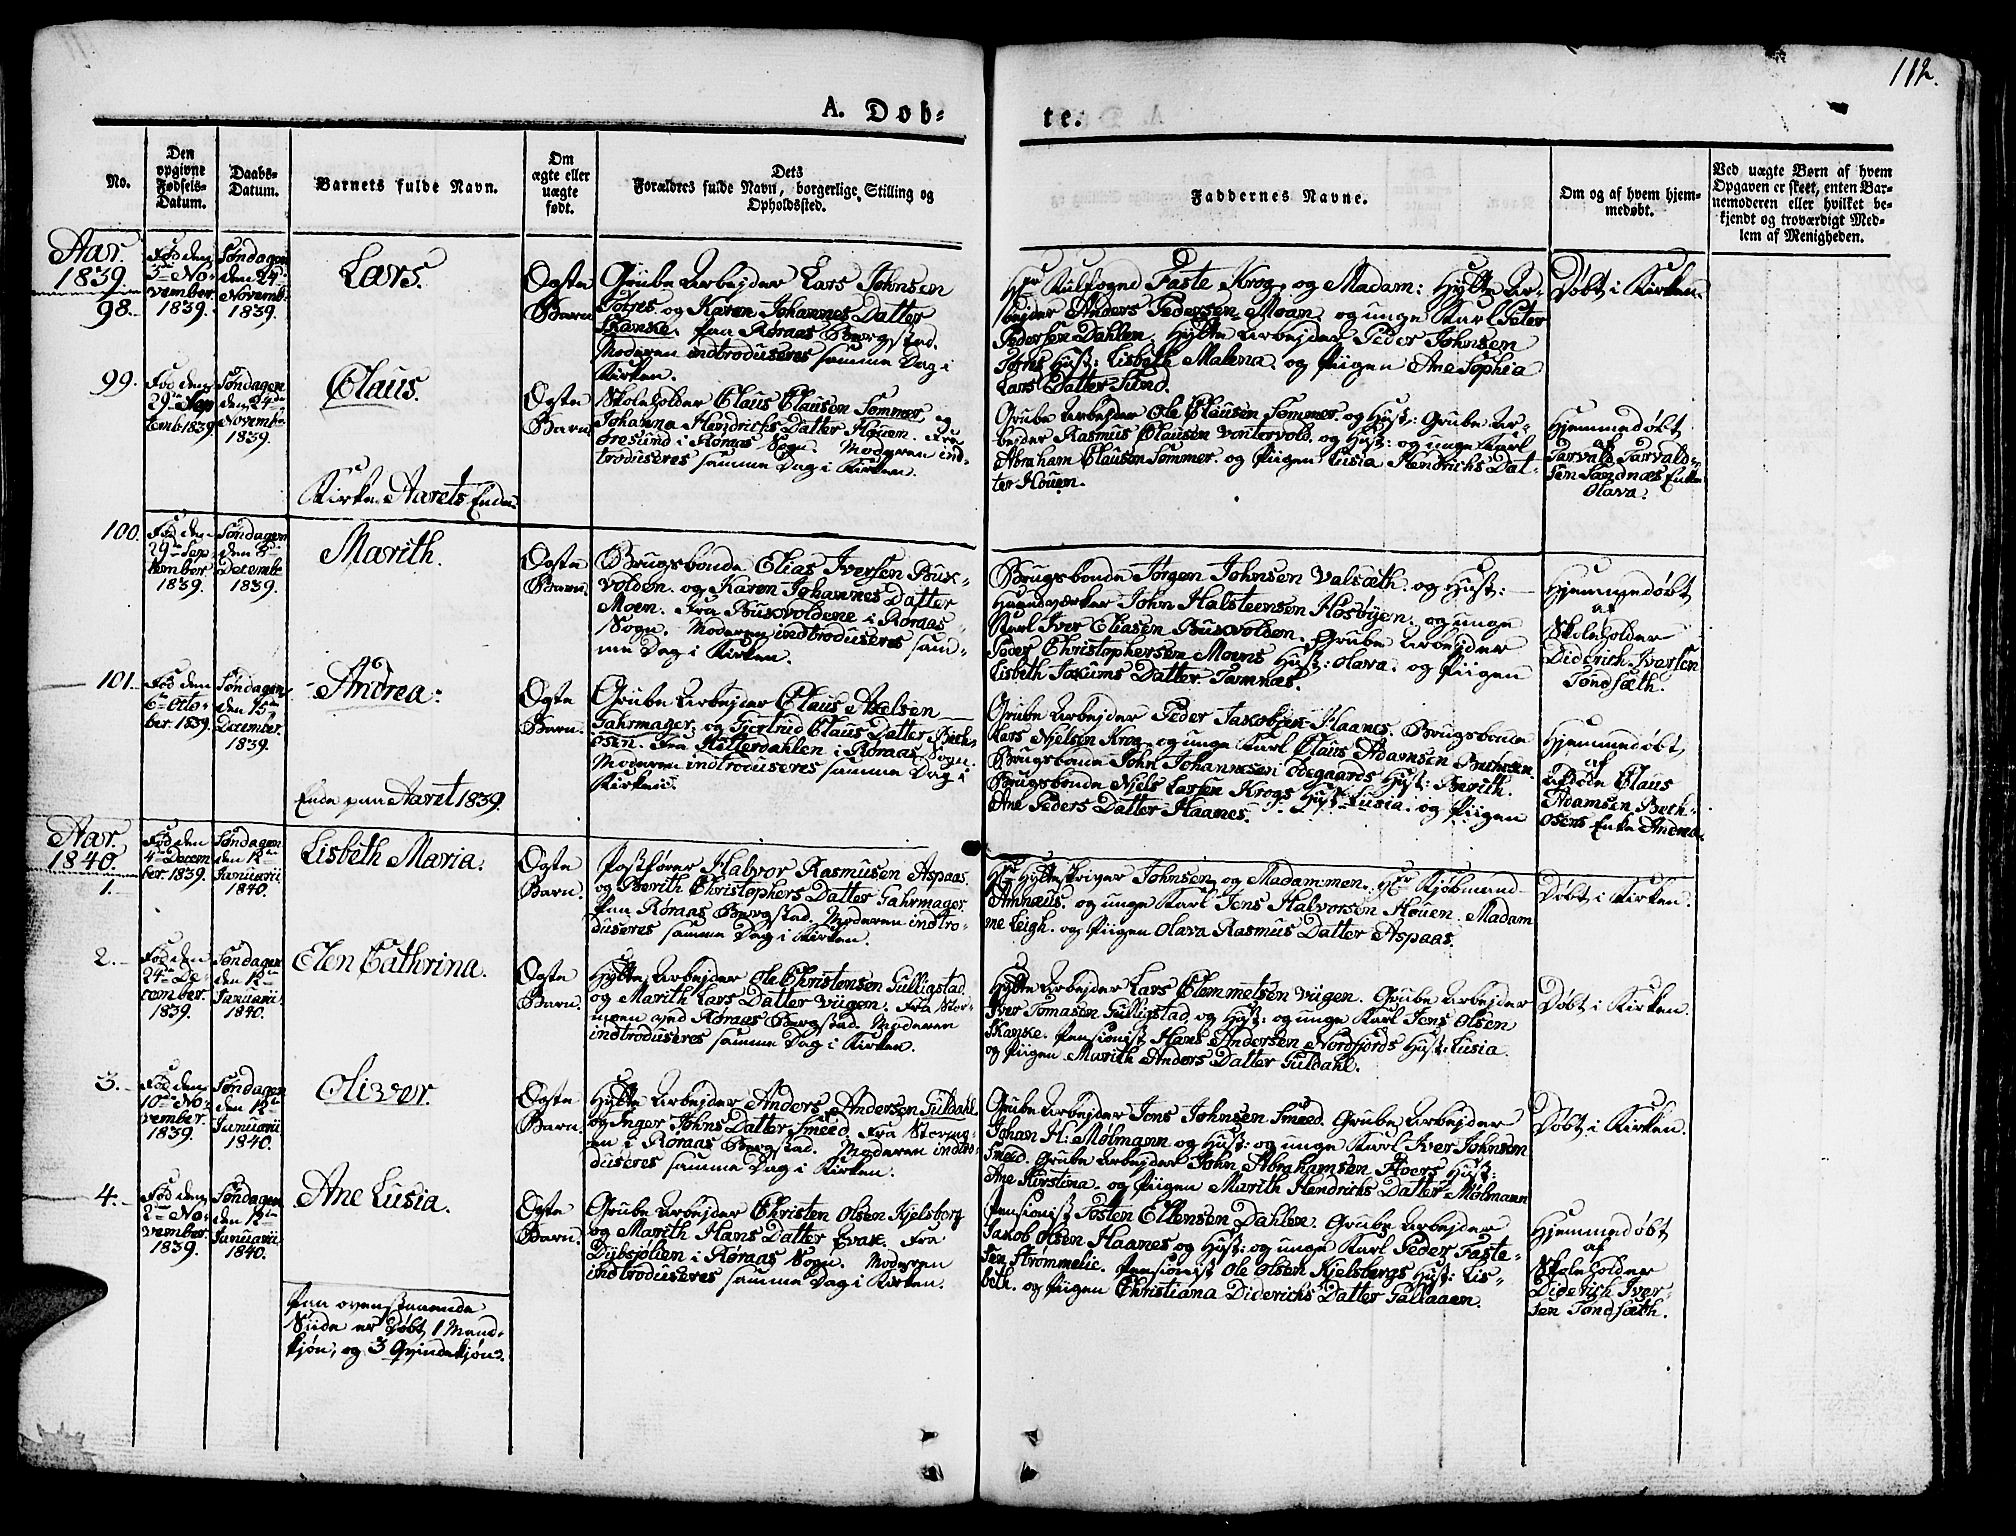 112.
A. Døb-
te.
No.
Den
opgivne
Fødsels-
Datum.
Daabs-
Datum.
Barnets fulde Navn.
Om
ægte eller
uægte
født.
Dets
Forældres fulde Navn, borgerlige Stilling og
Opholdssted.
Faddernes Navne.
Om og af hvem hjem-
medøbt.
Ved uægte Børn af hvem
Opgaven er skeet, enten Bar-
nemoderen eller hvilket be-
kjendt og troværdigt Med-
lem af Menigheden.
Aar.
1839.
98.
Fød den
3de No-
vember.
1839.
Søndagen
den 24de
Novemb.
1839.
Lars.
Ægte
Barn.
Grube Arbejder Lars Johnsen
Tørres og Karen Johannes Datter
Skanke. paa Røraas Bergstad.
Moderen indtroduseres samme Dag i
Kirken.
Hr Kulfogned Faste Krog, og Madam: Hytte Ar-
bejder Anders Pedersen Moan, og unge Karl Peter
Pedersen Dahlen, Hytte Arbejder Peder Johnsen
Tørres Hust: Lisbeth Malena, og Piigen Ane Sophia
Lars Datter Sund.
Døbt i Kirken.
99.
Fød den
29de Sep
temb 1839.
Søndagen
den 24de
Novembr
1839.
Claus.
Ægte
Barn.
Skoleholder Claus Clausen Sommer og
Johanna Hendrichs Datter Houen. Fra
Øresund i Røraas Sogn. Moderen ind-
troduseres samme Dag i Kirken.
Grube Arbejder Ole Clausen Sommer og Hust: Grube Ar-
bejder Rasmus Clausen Vintervold, og Hust: og unge Karl
Abraham Clausen Sommer. og Piigen Lusia Hendrichs Dat-
ter Houen.
Hjemmedøbt
af
Tarvald Tarvald-
sen Sandnæs Enke
Olava.
Kirke Aarets Ende.
100.
Fød den
29de Sep
tember
1839.
Søndagen
den 8de
Decembe
1839.
Marith.
Ægte
Barn.
Brugsbonde Elias Iversen Bux-
volden. og Karen Johannes Datter
Moen. Fra Buxvoldene i Røraas
Sogn. Moderen indtroduseres sam-
me Dag i Kirken.
Brugsbonde Jørgen Johnsen Valsæth. og Hust:
Haandværker John Halsteensen Hosøyen. og unge
Karl Iver Eliasen Buxvolden. Grube Arbejder
Peder Christophersen Moens Hust: Olava. og Piigen
Lisbeth Jakums Datter Tamnæs.
Hjemmedøbt
af
Skoleholder
Diderich Iversen
Tøndsæth.
101.
Fød den
6te Octo-
ber. 1839.
Søndagen
den 15de
December.
1839.
Andrea:
Ægte
Barn.
Grube Arbejder Claus Axelsen
Gahrmager, og Gjertrud Claus Datter Beth-
osen. Fra Hitterdahlen i Røraas Sogn.
Moderen indtroduseres samme Dag i
Kirken.
Grube Arbejder Peder Jakobsen Haanes. Brugsbonde
Lars Njelsen Krog, og unge Karl Claus Adamsen Bethosen.
Brugsbonde John Johannesen Ødegaards Hust: Berith.
Brugsbonde Njels Larsen Krogs Hust: Lusia. og Piigen
Ane Peders Datter Haanes.
Hjemmedøbt
af
Afdøe Claus
Adamsen Beth-
osens Enke Andrea.
Ende paa Aaret 1839.
Aar.
1840.
1.
Fød den
4de Decem
ber. 1839.
Søndagen
den 12te
Januarii
1840.
Lisbeth Maria.
Ægte
Barn.
Postfører Halvor Rasmusen Aspaas.
og Berith Christophers Datter Gahrmager
paa Røraas Bergstad. Moderen indtro-
duseres samme Dag i Kirken.
Hr Hytteskriver Johnsen og Madammen. Hr Kjøbmand
Amnæus. og unge Karl Jens Halvorsen Houen. Madam
me Leigh. og Piigen Olava Rasmus Datter Aspaas.
Døbt i Kirken.
2.
Fød den
24de De-
cember.
1839.
Søndagen
den 12te
Januarii
1840.
Elen Cathrina.
Ægte
Barn.
Hytte Arbejder Ole Christensen Gulligstad
og Marith Lars Datter Viigen. Fra Stor-
moen ved Røraas Bergstad. Moderen
indtroduseres samme Dag i Kirken.
Hytte Arbejder Lars Clemmetsen Viigen. Grube Arbejder
Iver Tomasen Gulligstad og Hust: og unge Karl Jens Olsen
Skanke. Pensionist Hans Andersen Nordfjords Hust: Lusia.
og Piigen Marith Anders Datter Guldahl.
Døbt i Kirken.
3.
Fød den
10de No-
vember.
1839.
Søndagen
den 12te
Januarii
1840.
Oliver.
Ægte
Barn.
Hytte Arbejder Anders Andersen Guldahl
og Inger Johns Datter Smeed. Fra Storeng-
en i Røraas Bergstad. Moderen indtro-
duseres samme Dag i Kirken.
Grube Arbejder Jens Johnsen Smeed. Grube Arbejder
Johan H: Mølmann og Hust: og unge Karl Iver Johnsen
Smeed. Grube Arbejder John Abrahamsen Aoers Hust:
Ane Kirstena. og Piigen Marith Hendrichs Datter Mølmann
Døbt i Kirken.
4.
Fød den
2de No-
vember.
1839.
Søndagen
den 12te
Januarii
1840.
Ane Lusia.
Ægte
Barn.
Grube Arbejder Christen Olsen Kjelsberg
og Marith Hans Datter Evax. Fra
Dybsjolien i Røraas Sogn. Moderen
indtroduseres samme Dag i Kirken.
Pensionist Tosten Ellensen Dahlen. Grube Arbejder
Jakob Olsen Haanes og Hust: og unge Karl Peder Faste-
sen Strømmelie. Pensionist Ole Olsen Kjelsbergs Hust: Lis-
beth. og Piigen Christiana Diderichs Datter Gallaaen.
Hjemmedøbt
af
Skoleholder
Diderich Iver-
sen Tøndsæth.
Paa ovenstaaende
Siide er Døbt 1 Mand-
kjøn, og 3 Qvindekjøn.